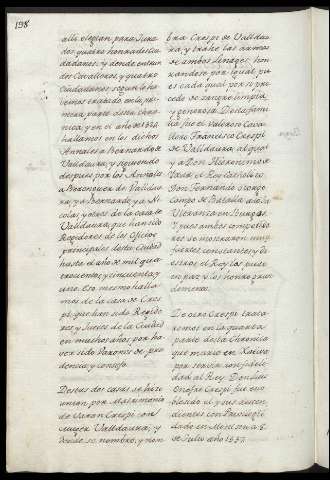 198
alli elegian para Jura
dos quatro honrados Ciu
dadanos y donde entran
dos Cavalleros, y quatro
Ciudadanos segun lo ha
vemos tratado en la pri
mera parte desta Chro
nica, y en el año de 1336
hallamos en los dichos
Annales a Bernardo de
Valldaura, y siguiendo
despues por los Annales
a Berenguer de Valldau
ra, y a Bernardo y a Ni
colas, y otros de la casa de
Valldaura, que han sido
Regidores de los Oficios
principales desta Ciudad
hasta el año de mil qua
trocientos y cinquenta y
uno. Eso mesmo halla
mos de la casa de Cres
pi, que han sido Regido
res y Jueces de la Ciudad
en muchos años por ha
ver sido Varones de pru
dencia, y consejo.
Destas dos casas se hizo
union por Matrimonio
de Varon Crespi con
muger Valldaura, y
desde se nombro, y nom
bra Crespi de Valldau
ra, y trahe las armas
de ambos linages, hon
randose por igual, pu
es cada qual por si pro
cede de sangre limpia,
y generosa. Desta fami
lia fue el Valeroso Cava
llero Francisco Crespi
de Valldaura, al qual
y a Don Hieronimo de
el Rey Catholico
Don Fernando otorgo
Campo de Batalla a la
Vitoria en Burgos.
Y pues ambos competido
res se mostraron muy
fuertes constantes y di
estros, el Rey los puso
en paz y los honro gran
demente.
De otro Crespi trata
remos en la quarta
parte desta Chronica
que murio en Xativa
por servir con fideli
dad al Rey. Don Luis
Onofre Crespi fue eno
blecido el y sus descen
dientes con Privilegio
dado en Monzon a 8.
de Julio año 1537.